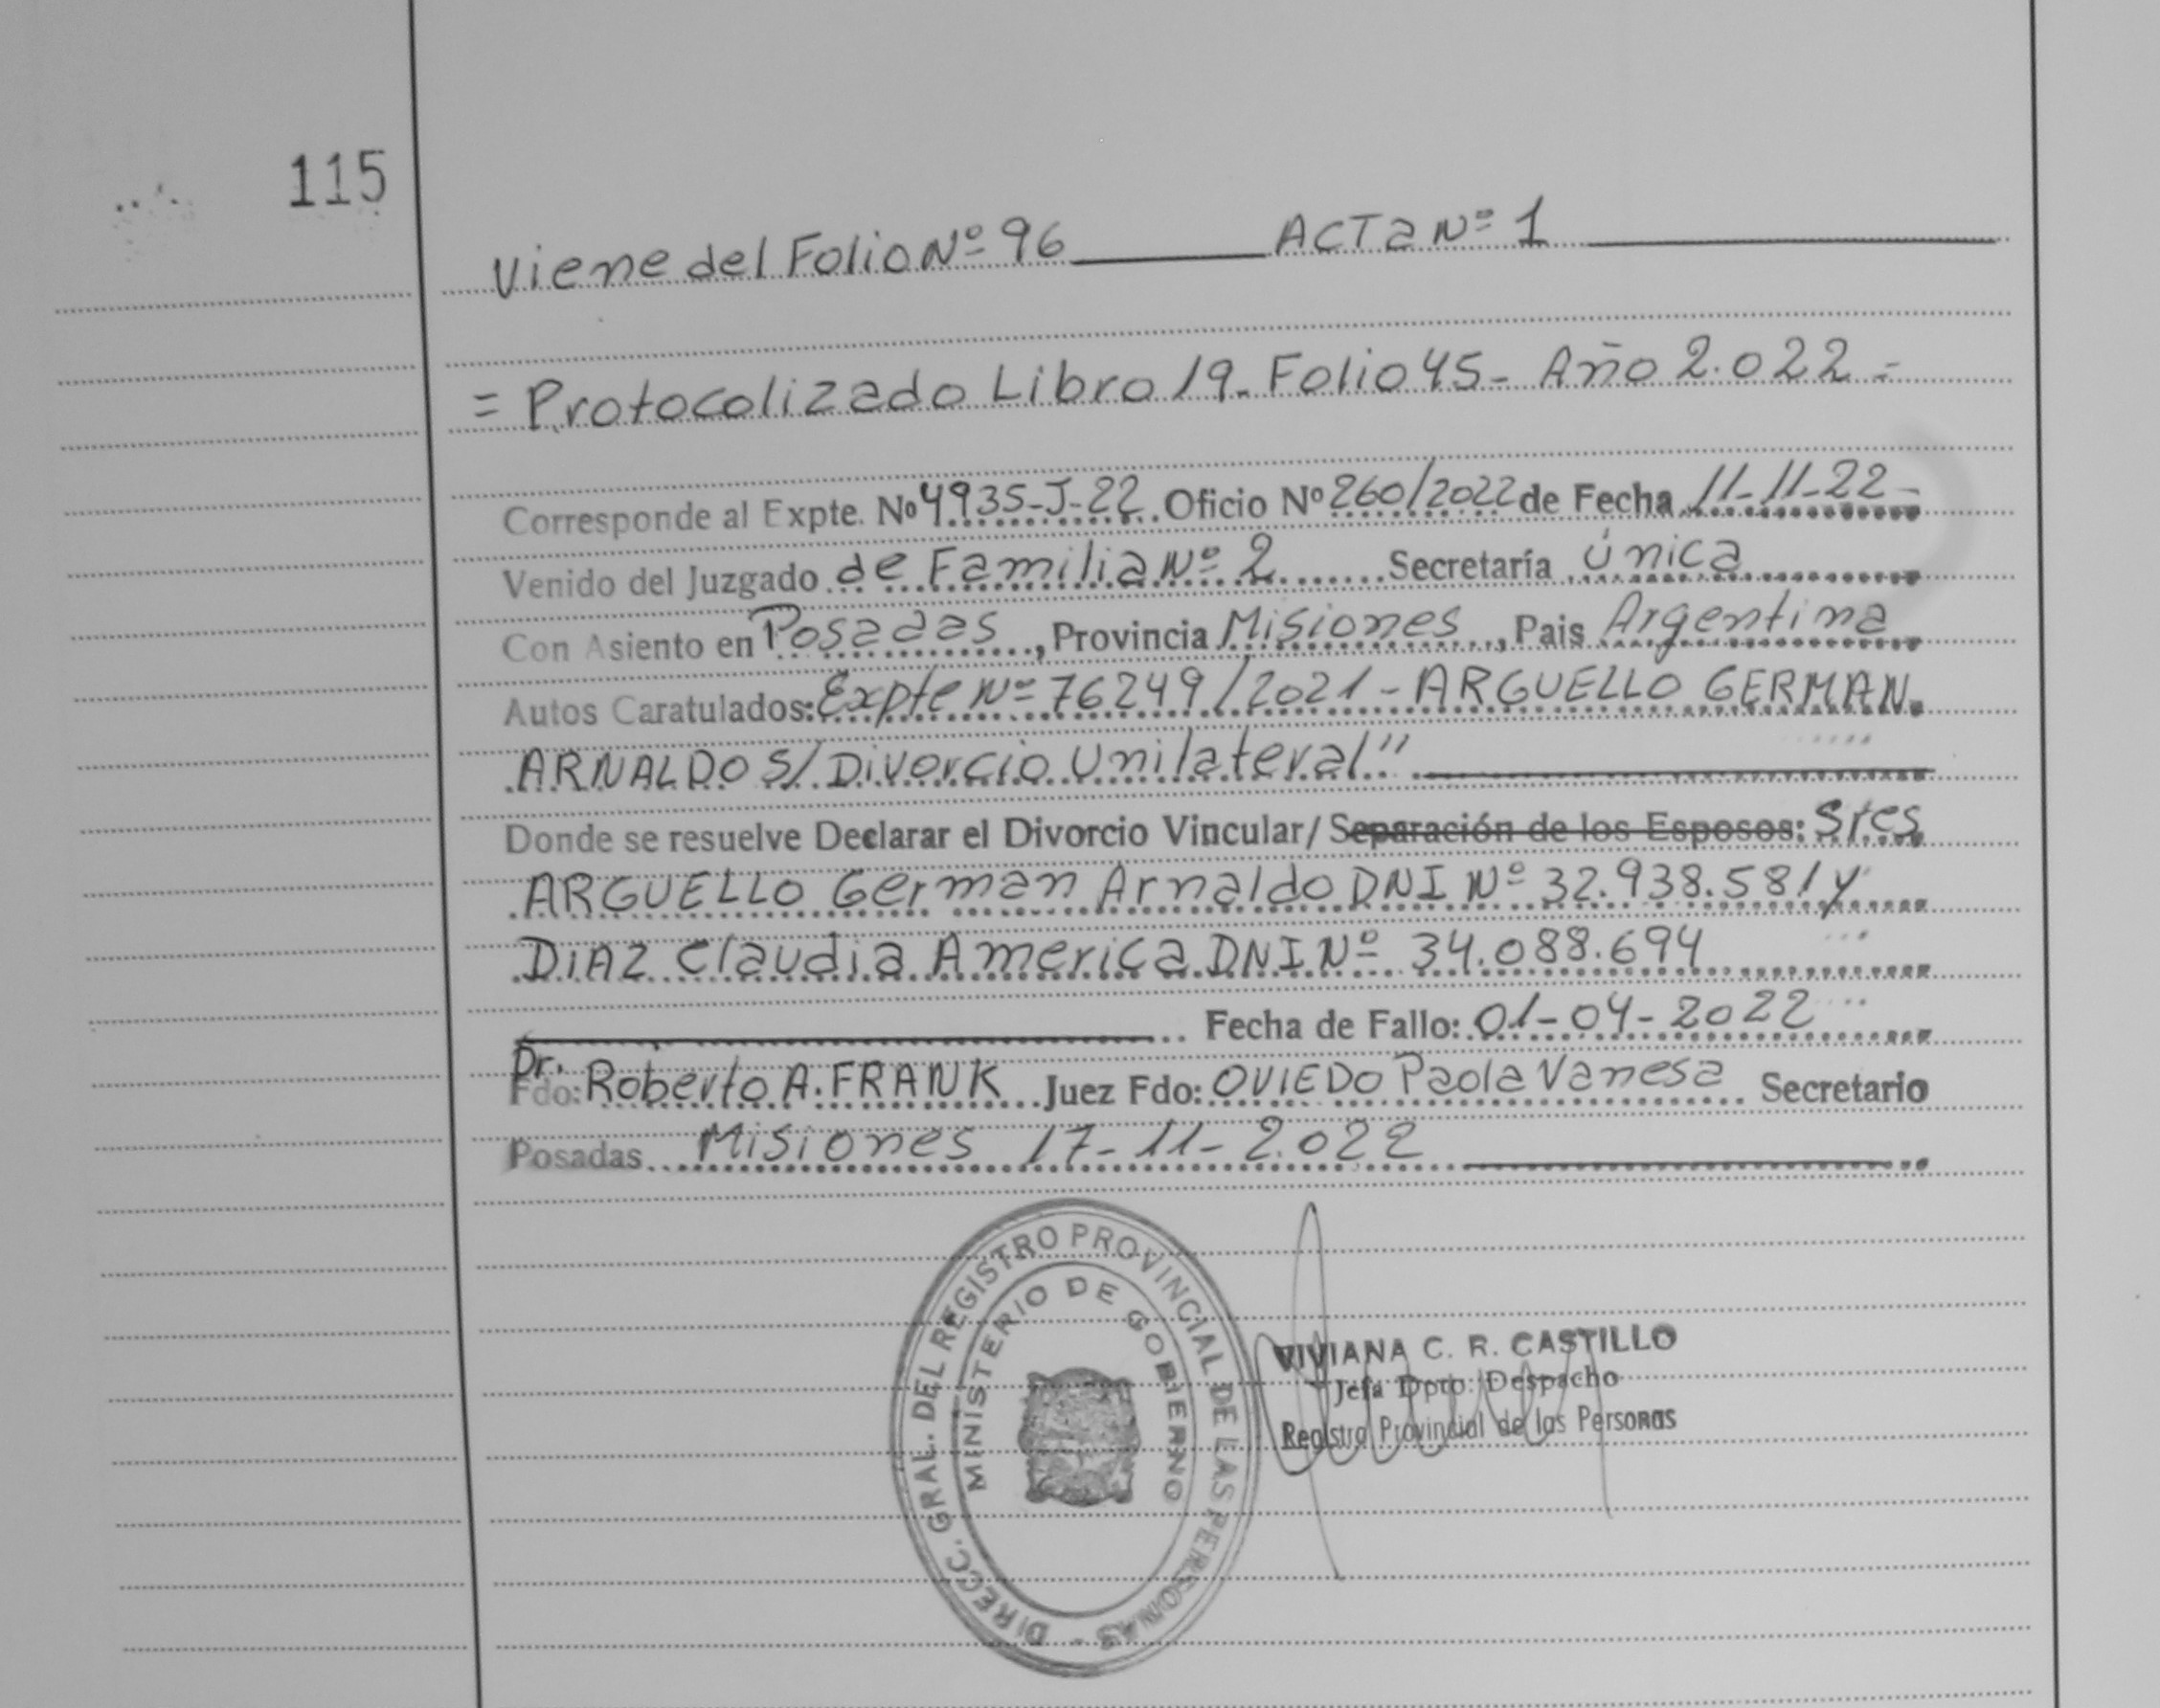 115
Viene del Folio Nº 96 ACTA Nº 1
= Protocolizado Libro 19- Folio 45- Año 2.022 =
Corresponde al Expte. Nº 4935-J-22. Oficio Nº 260/2022 de Fecha 11-11-22-
Venido del Juzgado de Familia Nº 2 Secretaría Única
Con Asiento en Posadas, Provincia Misiones, Pais Argentina
Autos Caratulados: Expte Nº 76249/2021 - ARGUELLO GERMAN
ARNALDO S/ Divorcio Unilateral"
Donde se resuelve Declarar el Divorcio Vincular/ Separación de los Esposos: Sres
ARGUELLO German Arnaldo DNI Nº 32.938.581 y
DIAZ Claudia America DNI Nº 34.088.694
Fecha de Fallo: 01-04-2022
Dr.
Fdo: Roberto A. FRANK Juez Fdo: OVIEDO Paola Vanesa Secretario
Posadas Misiones 17-11-2.022
DIRECC. GRAL. DEL REGISTRO PROVINCIAL DE LAS PERSONAS -
MINISTERIO DE GOBIERNO
VIVIANA C. R. CASTILLO
Jefa Dpto. Despacho
Registro Provincial de las Personas